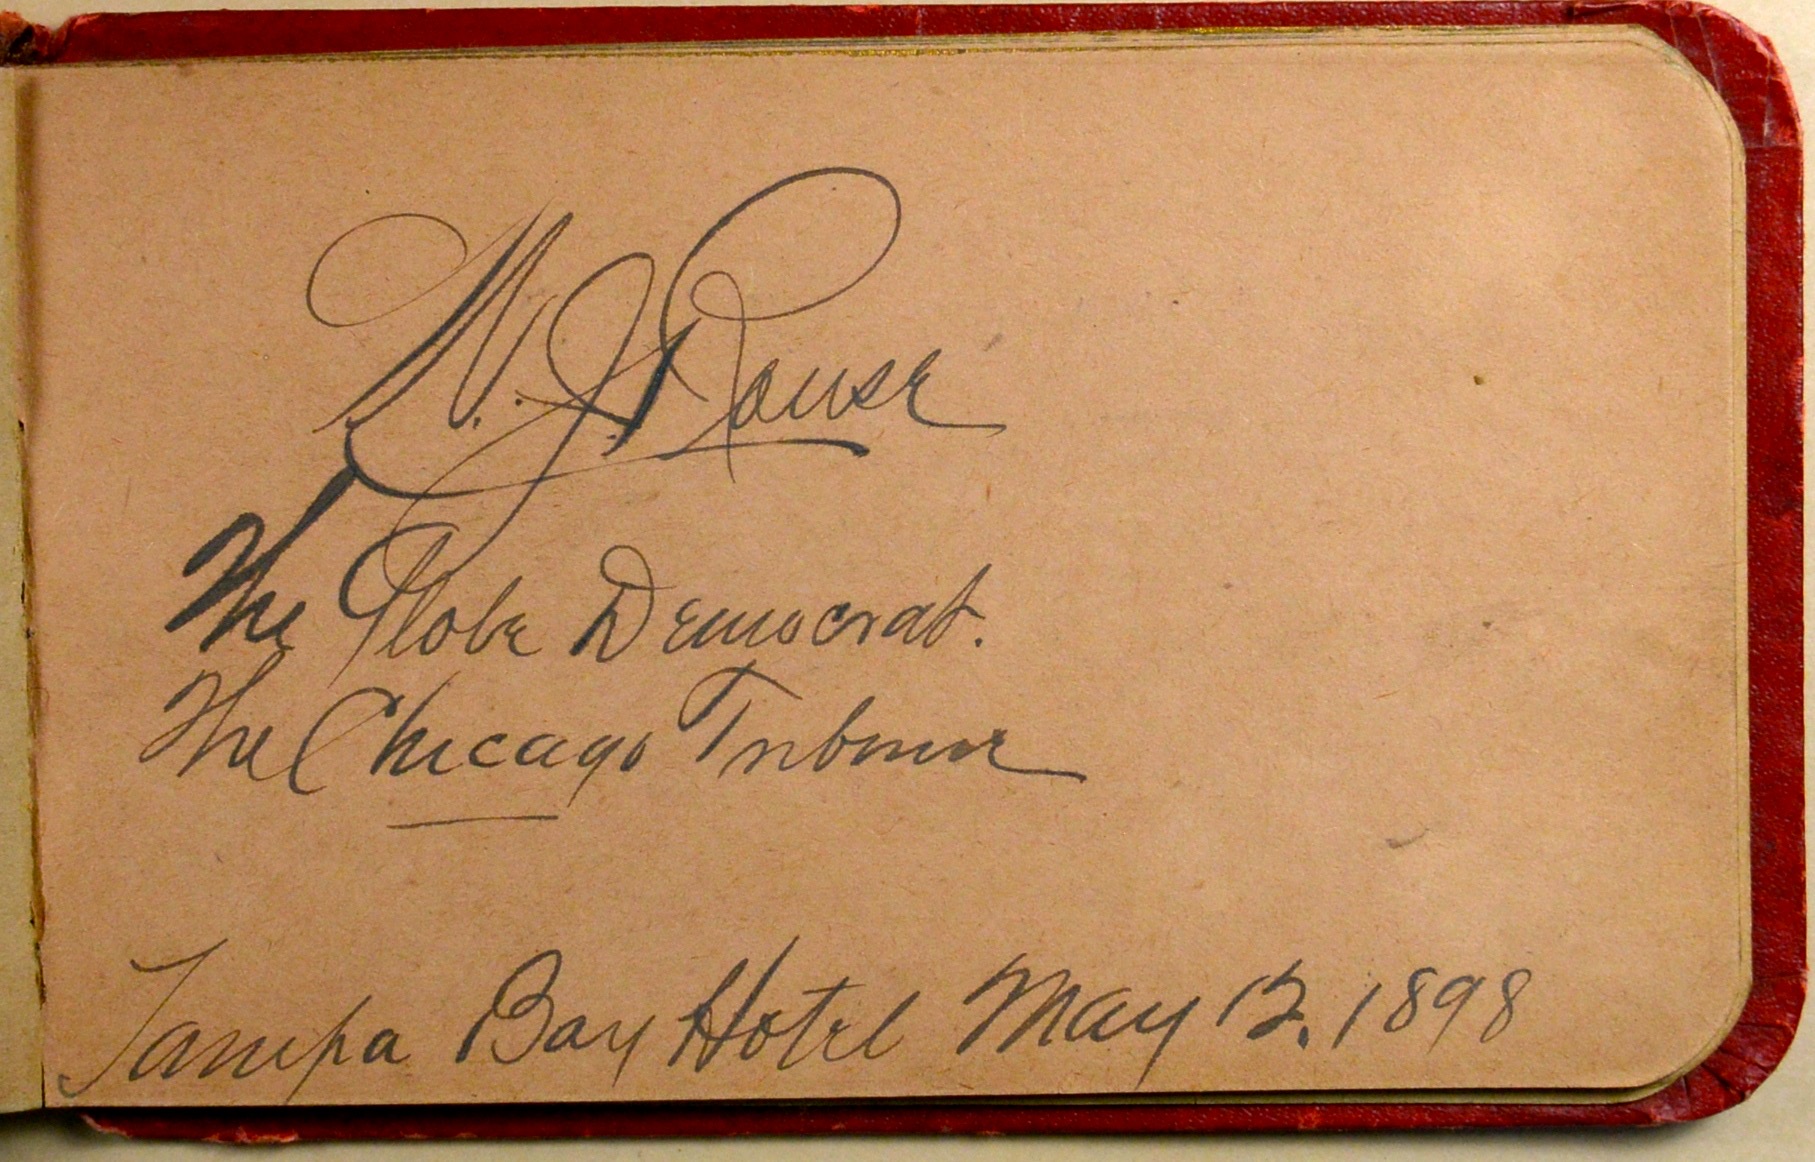 W. J. Rouse
The Globe Democrat.
The Chicago Tribune
Tampa Bay Hotel May 12, 1898